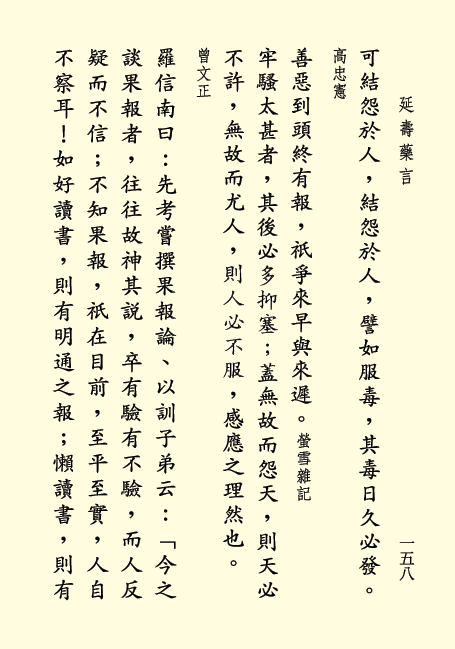 延壽藥言
一五八
可結怨於人，結怨於人，譬如服毒，其毒日久必發。
高忠憲
善惡到頭終有報，祇爭來早與來遲。螢雪雜記
牢騷太甚者，其後必多抑塞；蓋無故而怨天，則天必
不許，無故而尤人，則人必不服，感應之理然也。
曾文正
羅信南曰：先考嘗撰果報論、以訓子弟云：「今之
談果報者，往往故神其說，卒有驗有不驗，而人反
疑而不信；不知果報，祇在目前，至平至實，人自
不察耳！如好讀書，則有明通之報；懶讀書，則有